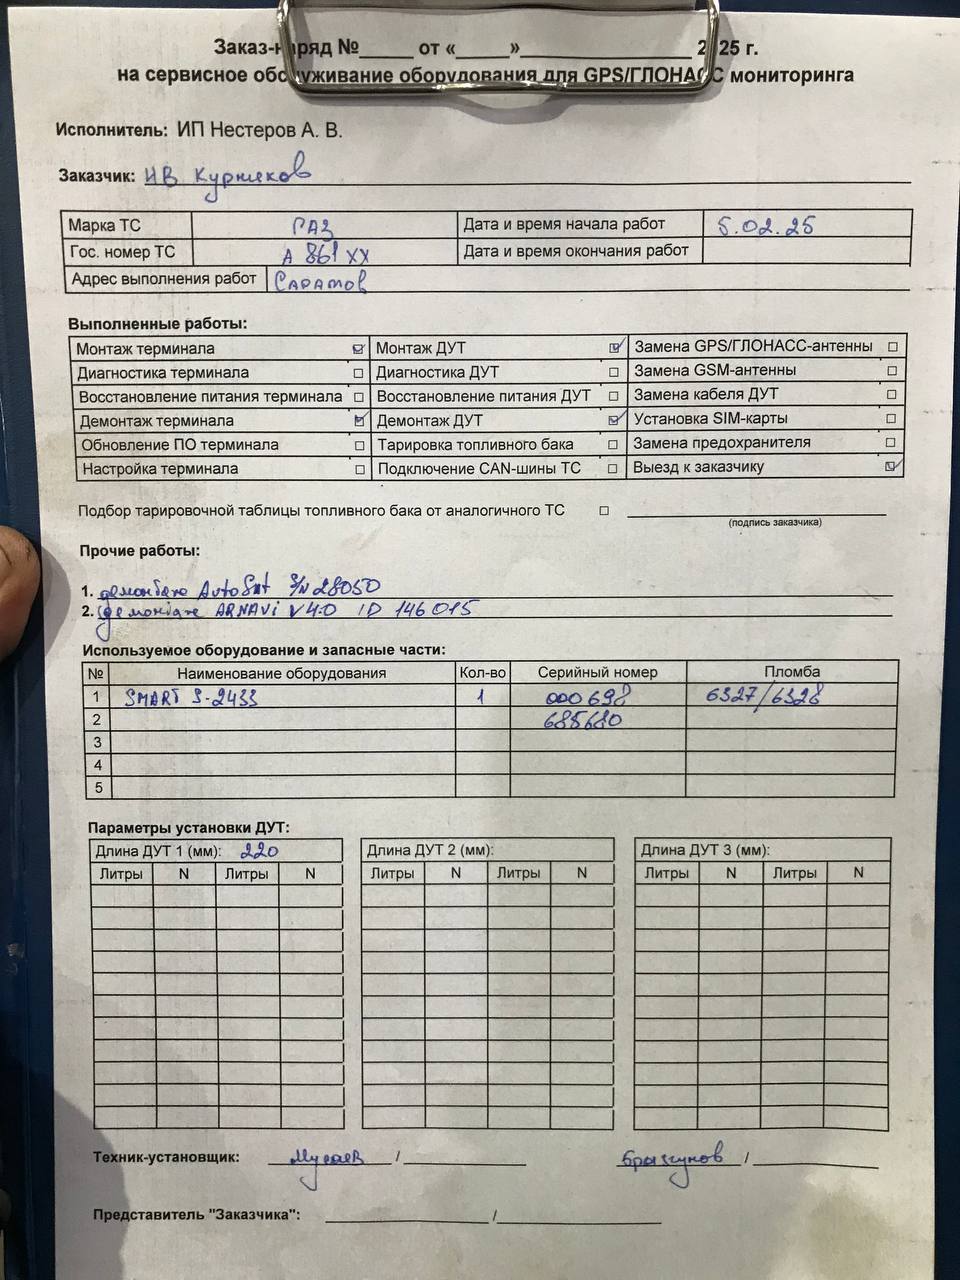 Заказ-наряд №_____ от «_____»________________ 2025 г.
на сервисное обслуживание оборудования для GPS/ГЛОНАСС мониторинга
Исполнитель: ИП Нестеров А. В.
Заказчик: ИВ Курников
Марка ТС ГАЗ Дата и время начала работ 5.02.25
Гос. номер ТС А 861 ХХ Дата и время окончания работ
Адрес выполнения работ Саратов
Выполненные работы:
Монтаж терминала ☑ Монтаж ДУТ ☑ Замена GPS/ГЛОНАСС-антенны ☐
Диагностика терминала ☐ Диагностика ДУТ ☐ Замена GSM-антенны ☐
Восстановление питания терминала ☐ Восстановление питания ДУТ ☐ Замена кабеля ДУТ ☐
Демонтаж терминала ☑ Демонтаж ДУТ ☑ Установка SIM-карты ☐
Обновление ПО терминала ☐ Тарировка топливного бака ☐ Замена предохранителя ☐
Настройка терминала ☐ Подключение CAN-шины ТС ☐ Выезд к заказчику ☑
Подбор тарировочной таблицы топливного бака от аналогичного ТС ☐
(подпись заказчика)
Прочие работы:
1. демонтаж AutoSat S/N 28050
2. демонтаж ARNAVI V4.0 ID 146015
Используемое оборудование и запасные части:
№ Наименование оборудования Кол-во Серийный номер Пломба
1 SMART S-2433 1 000698 6327/6328
2 685680
3
4
5
Параметры установки ДУТ:
Длина ДУТ 1 (мм): 220 Длина ДУТ 2 (мм): Длина ДУТ 3 (мм):
Литры N Литры N Литры N Литры N Литры N Литры N
Техник-установщик: Мусаев / Брызгунов /
Представитель "Заказчика": /